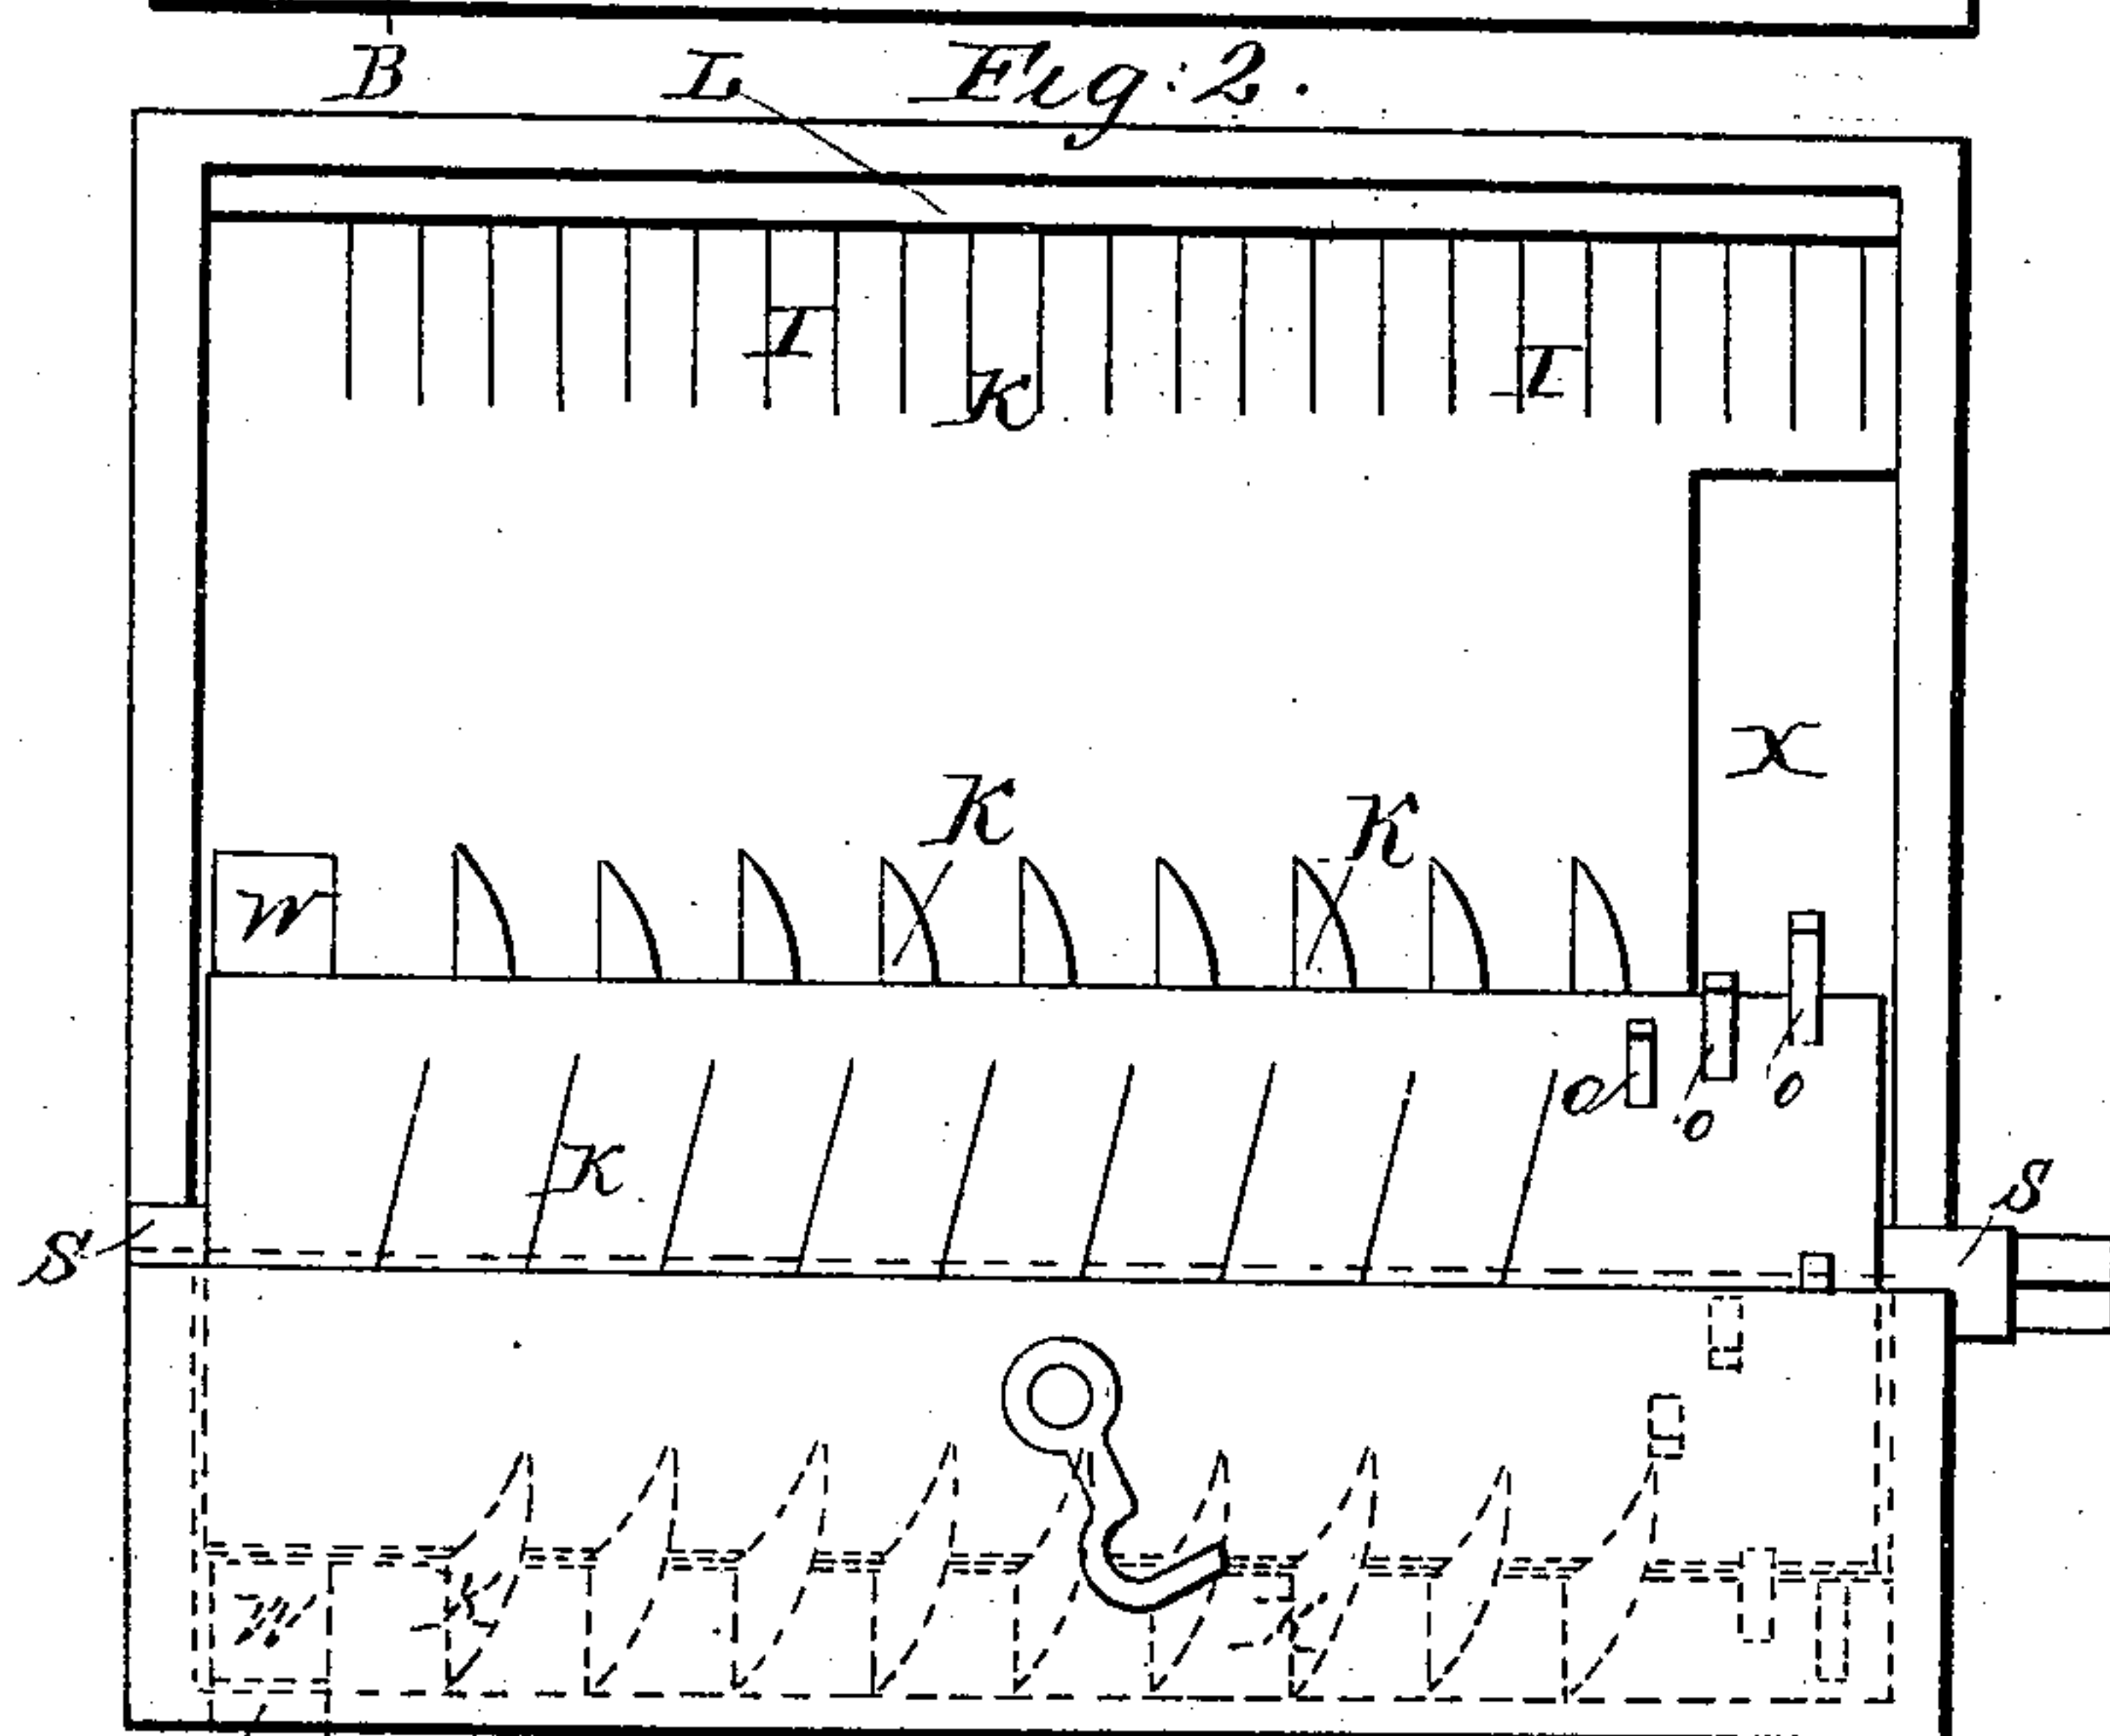 B L Fig: 2.
I I
K
X
K K
W
O O O
K
S S
W K K